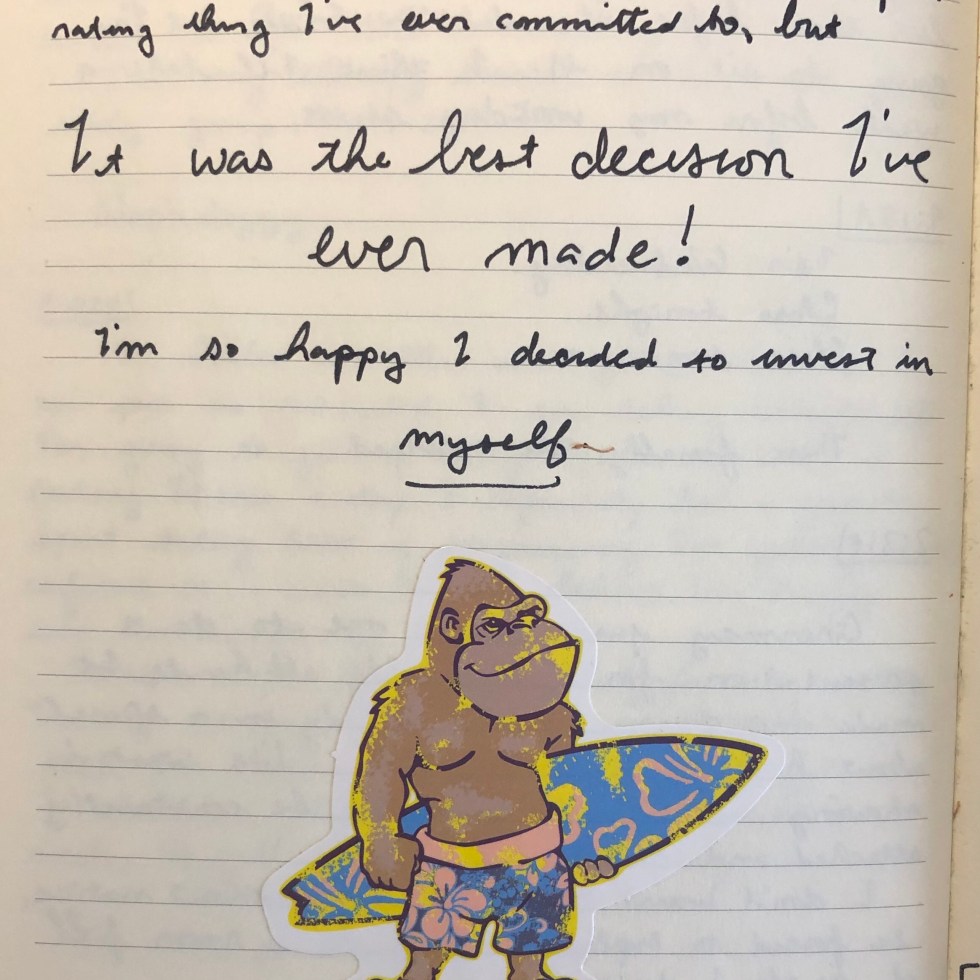 rating thing I've ever committed to, but
It was the best decision I've
ever made!
I'm so happy I decided to invest in
myself